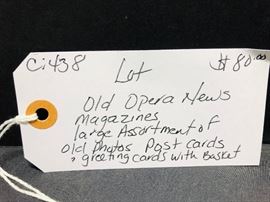 Ci438 Lot $80.00
Old Opera News
Magazines
large Assortment of
old Photos Post cards
& greeting cards with Basket